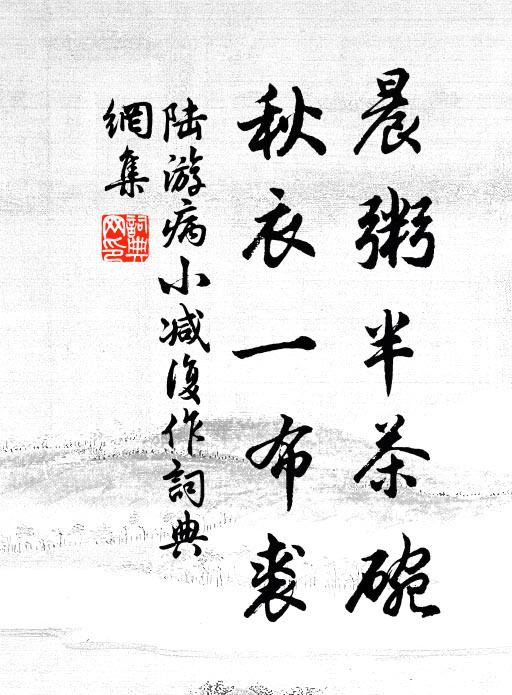 晨粥半茶碗
秋衣一布裘
陆游病小减复作詞典
網集
詞典網印